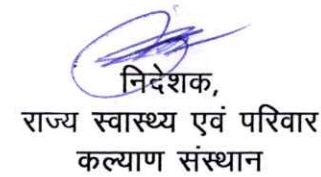 निदेशक,
राज्य स्वास्थ्य एवं परिवार
कल्याण संस्थान